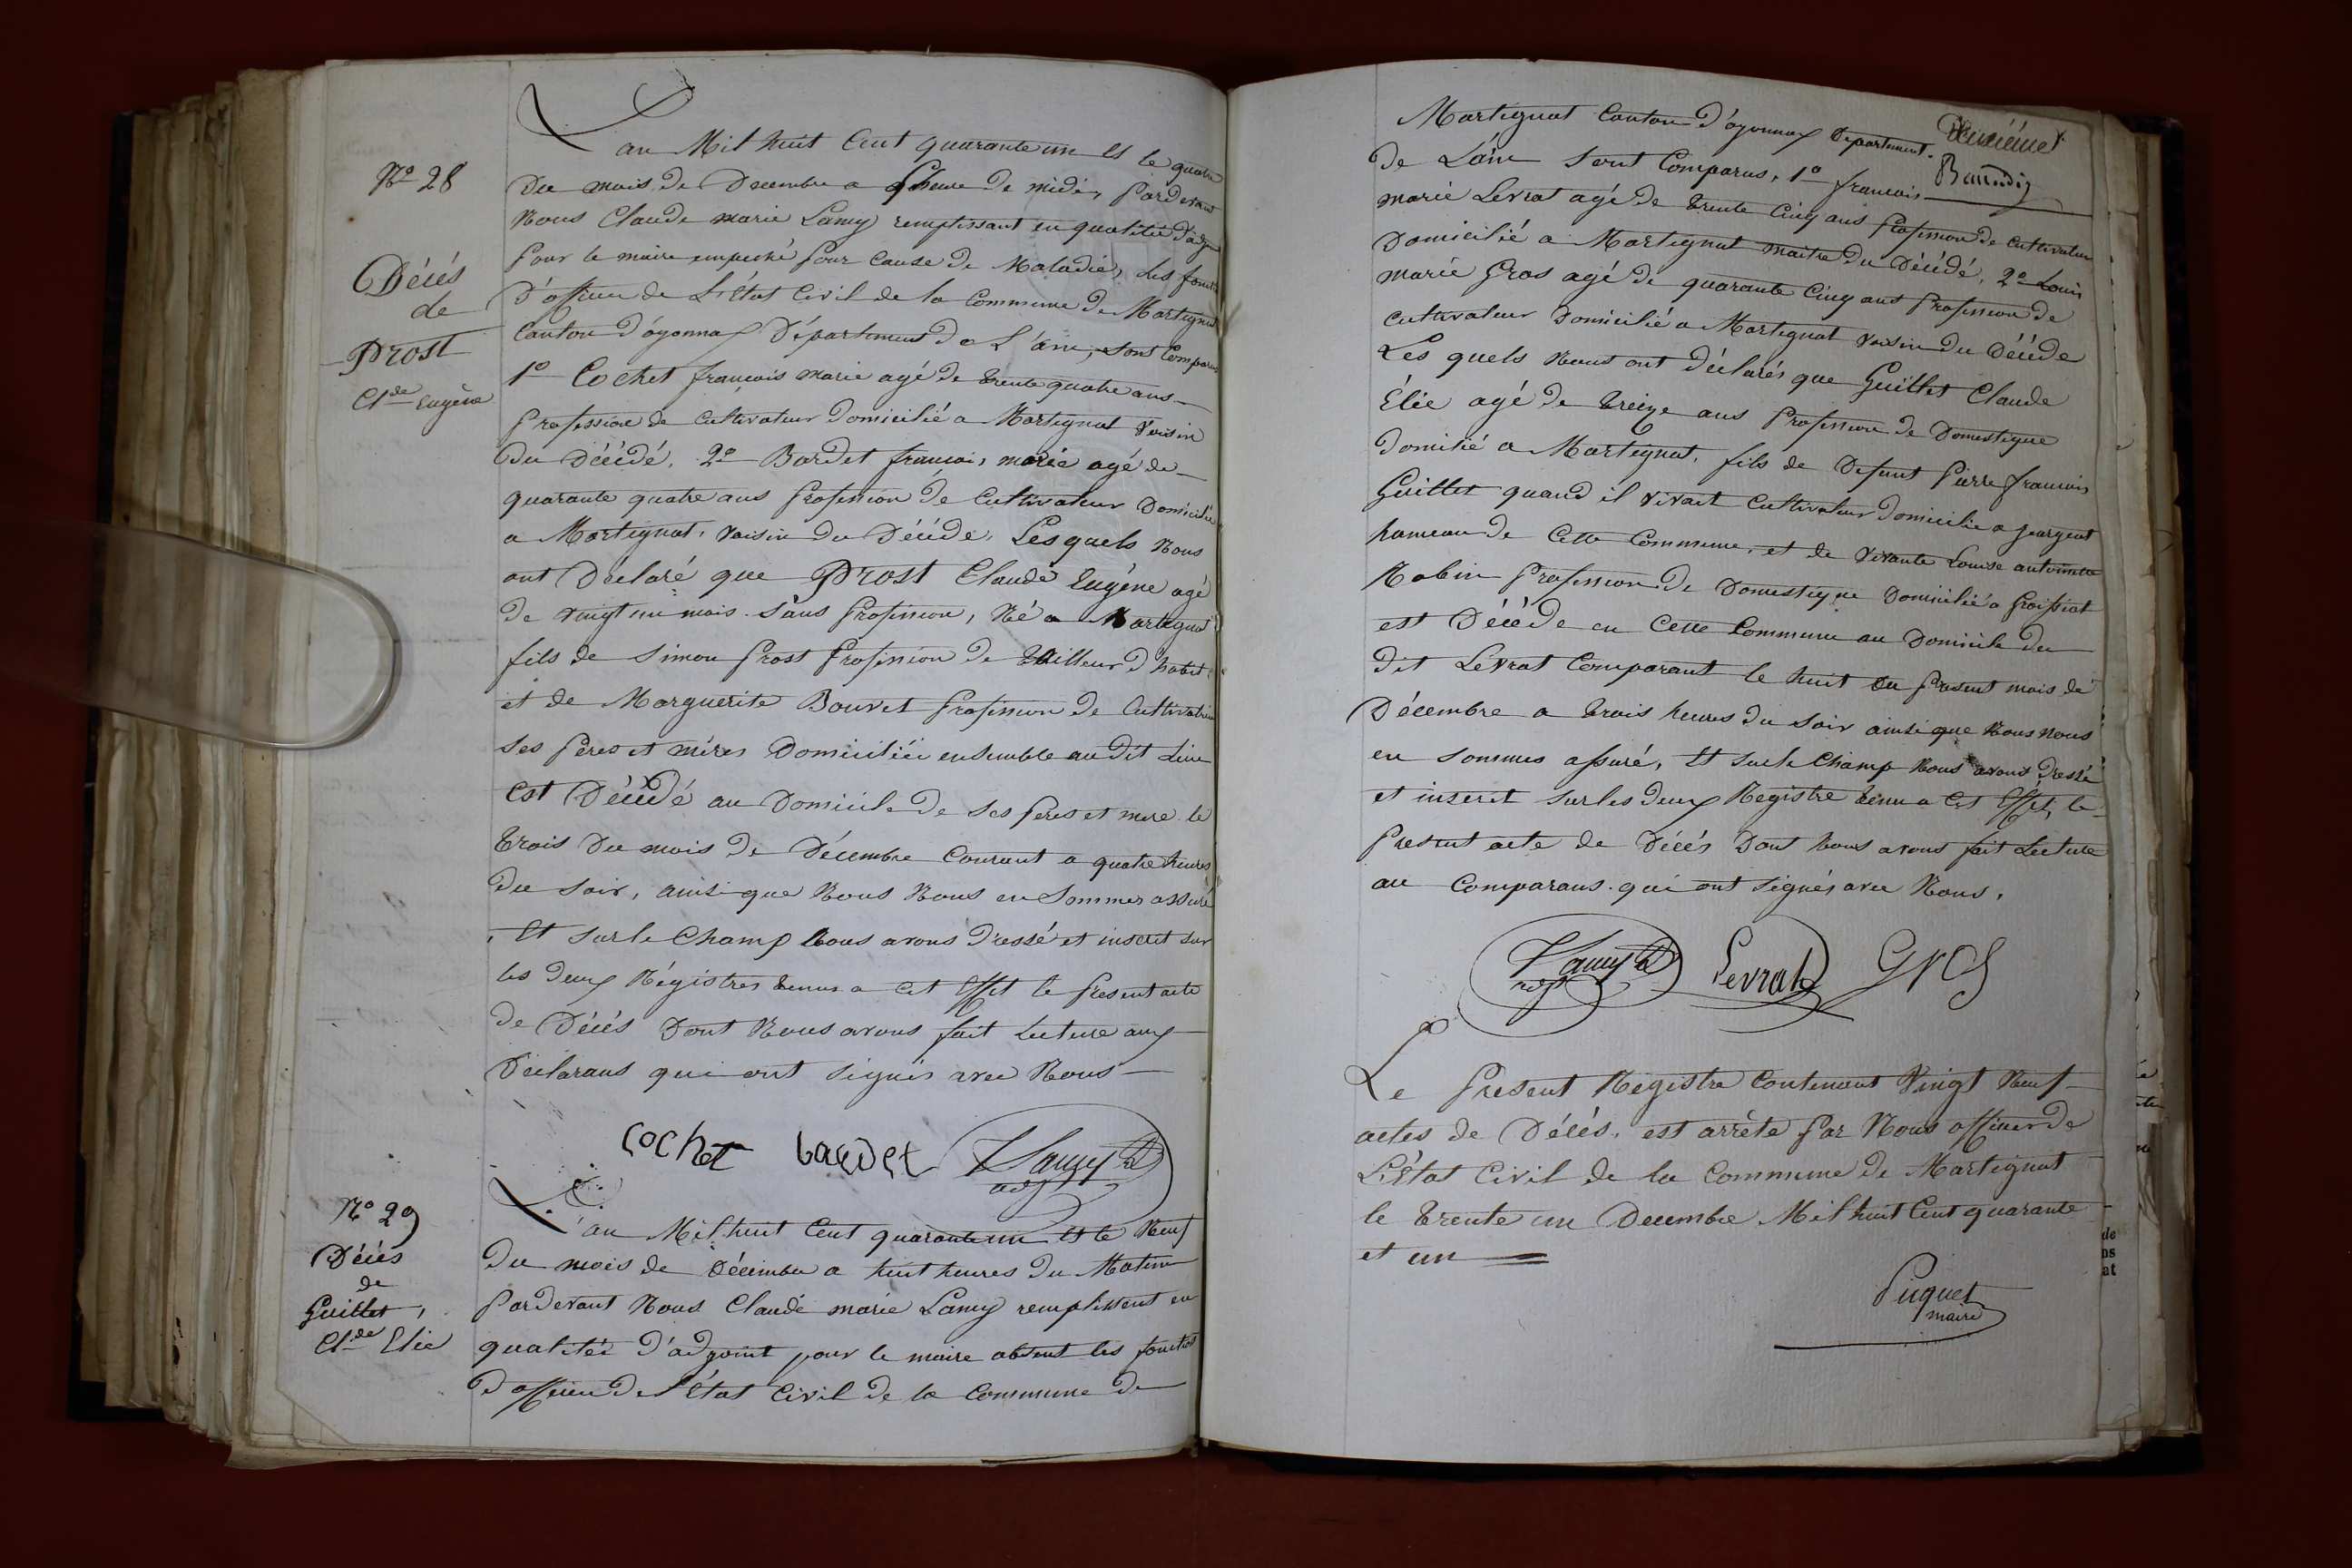 N° 28
Décés
de
Prost
Cl.de Eugène
L'an Mil huit Cent quarante un Et le quatre
du mois de Decembre a heure de midi, Pardevant
Nous Claude marie Lamy remplissant en qualité d'adj
pour le maire empeché pour Cause de Maladie, les fonct
d'officier de L'État Civil de la Commune de Martignat
Canton d'oyonnax Département de L'ain, sont Comparus
1° Cochet francois marie agé de trente quatre ans
profession de Cultivateur domicilié a Martignat voisin
du Décédé. 2° Bardet francois marie agé de
quarante quatre ans profession de Cultivateur Domicilié
a Martignat, voisin du Décédé. Lesquels Nous
ont Declaré que Prost Claude Eugène agé
de vingt un mois sans profession, Né a Martignat
fils de Simon Prost profession de tailleur d'habit
et de Marguerite Bouvet profession de Cultivatrice
ses peres et mères Domiciliée ensemble au dit Lieu
est Décédé au Domicile de ses peres et mere le
trois du mois de Décembre Courant a quatre heures
du soir, ainsi que Nous Nous en sommes assuré
, Et sur le Champ Nous avons dressé et inscrit sur
les deux Régistres tenus a cet Effet le present acte
de Décés Dont Nous avons fait Lecture aux
Déclarans qui ont signés avec Nous
cochet bardet Lamy
adj
N° 29
Décés
de
Guillet,
Cl.de Elie
L'an Mil huit Cent quarante un Et le Neuf
du mois de Décembre a huit heures du Matin
pardevant Nous Claude marie Lamy remplissent en
qualitée d'adjoint pour le maire absent les fonction
d'officier de l'État Civil de la Commune de
deuxiéme
Martignat Canton d'oyonnax Departement
de L'ain sont Comparus, 1° francois
marie Levrat agé de trente Cinq ans profession de Cultivateur
domicilié a Martignat maitre du Décédé, 2° Louis
marie Gros agé de quarante Cinq ans profession de
Cultivateur Domicilié a Martignat voisin du Décédé
Les quels Nous ont déclarés que Guillet Claude
Élie agé de treize ans profession de Domestique
domilié a Martignat, fils de Defunt Pierre francois
Guillet quand il vivait Cultivateur domicilié a geargeat
hameau de Cette Commune, et de vivante Louise antoinette
Robin profession de Domestique Domicilié a Groissiat
est Décéde en Cette Commune au Domicile du
dit Levrat Comparant le huit du present mois de
Décembre a trois heures du soir ainsi que Nous nous
en sommes assuré, Et sur le Champ Nous avons dressé
et inscrit sur les deux Registre tenu a Cet Effet, le
present acte de Décés Dont Nous avons fait Lecture
au Comparans qui ont signés avec Nous.
Lamy Levrat Gros
adj
Le present Registre Contenant Vingt Neuf
actes de Décés, est arrêté par Nous officier de
L'État Civil de la Commune de Martignat
le trente un Decembre Mil huit Cent quarante
et un
Piquet
maire
de
ns
at